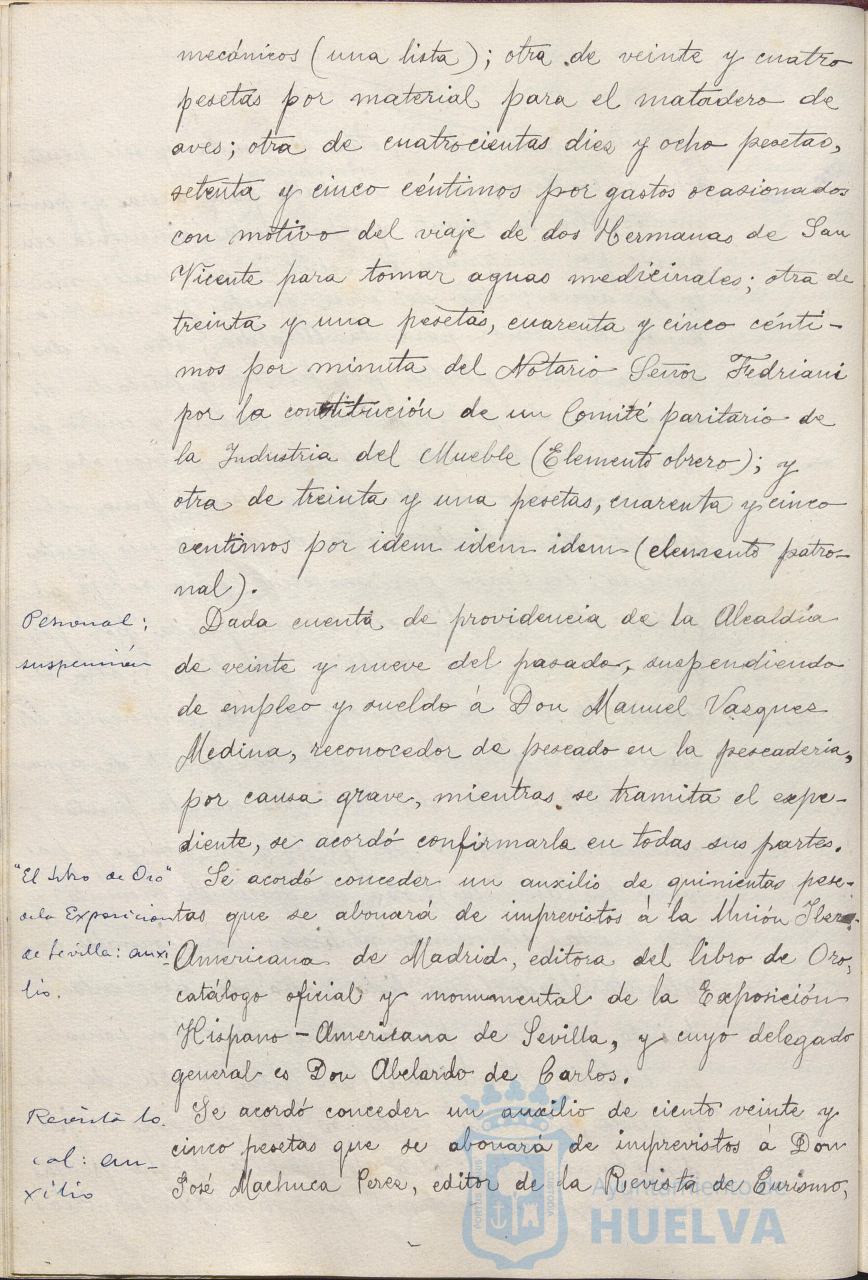 mecánicos (una lista); otra de veinte y cuatro
pesetas por material para el matadero de
aves; otra de cuatrocientas diez y ocho pesetas,
setenta y cinco céntimos por gastos ocasionados
con motivo del viaje de dos Hermanas de San
Vicente para tomar aguas medicinales; otra de
treinta y una pesetas, cuarenta y cinco cénti-
mos por minuta del Notario Señor Fedriani
por la constitución de un Comité paritario de
la Industria del Mueble (Elemento obrero); y
otra de treinta y una pesetas, cuarenta y cinco
centimos por idem idem idem (elemento patro-
nal).
Personal:
suspensión
Dada cuenta de providencia de la Alcaldía
de veinte y nueve del pasado, suspendiendo
de empleo y sueldo á Don Manuel Vazquez
Medina, reconocedor de pescado en la pescaderia,
por causa grave, mientras se tramita el expe-
diente, se acordó confirmarla en todas sus partes.
"El Libro de Oro"
de la Exposicion
de Sevilla: auxi-
lio.
Se acordó conceder un auxilio de quinientas pese-
tas que se abonará de imprevistos á la Unión Ibero-
Americana de Madrid, editora del libro de Oro,
catálogo oficial y monumental de la Exposición
Hispano-Americana de Sevilla, y cuyo delegado
general es Don Abelardo de Carlos.
Revista lo-
cal: au-
xilio
Se acordó conceder un auxilio de ciento veinte y
cinco pesetas que se abonará de imprevistos á Don
José Machuca Perez, editor de la Revista de Turismo,
Ayuntamiento de
HUELVA